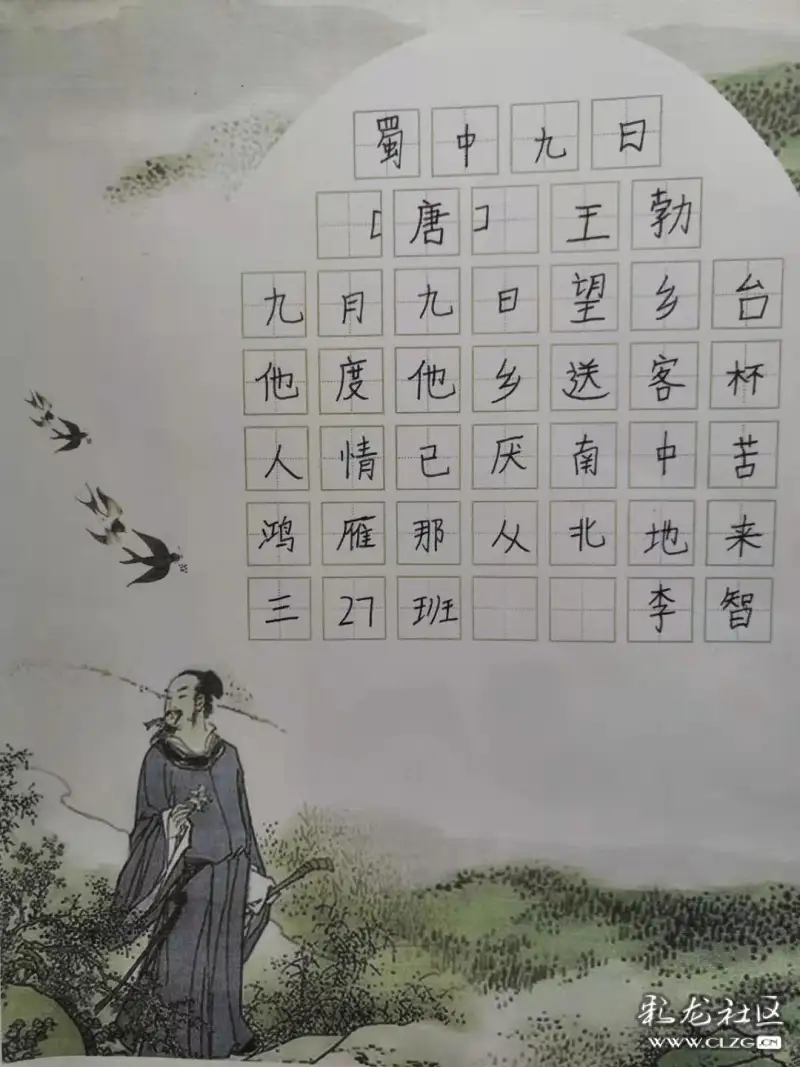 蜀中九日
[唐] 王勃
九月九日望乡台
他度他乡送客杯
人情已厌南中苦
鸿雁那从北地来
三27班 李智
彩龙社区
WWW.CLZG.CN